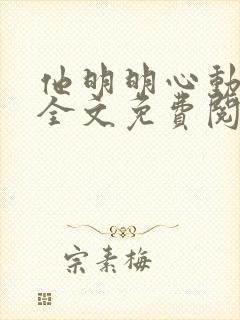 他明明心動
全文免費閱
宗素梅